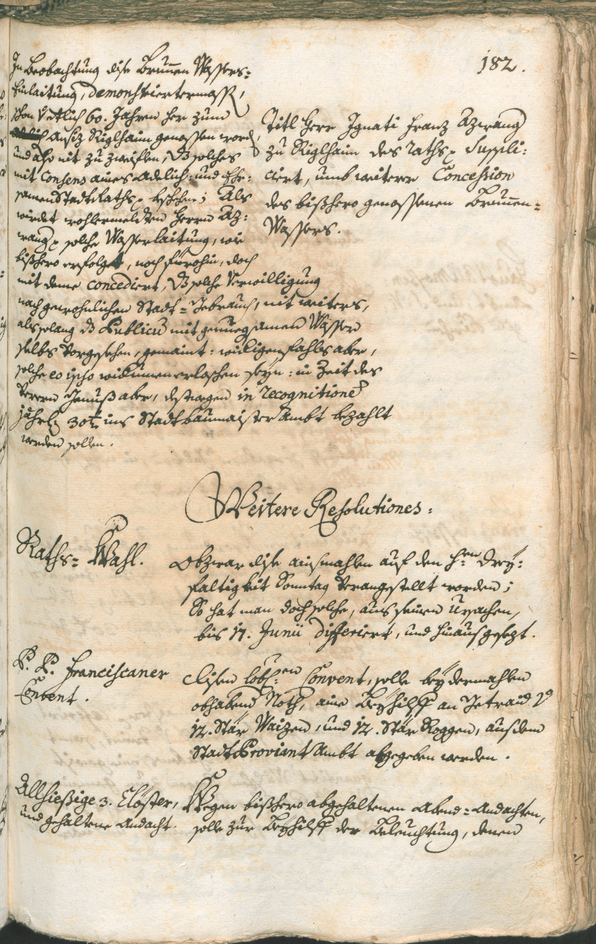 182.
In Beobachtung dise Brunnen Wassers-
Einlaitung, demonstriertermass,
schon Etlich 60. Jahren her zum
Ansiz Riglhaim genossen word,
und also nit zu zweiflen, dß solches
mit Consens aines Adelich- und Ehr-
samen Stadt Raths beschehen; Als
wirdet wohlermeldten Herrn Az-
wang solche Wasserlaitung, wie
bißhero erfolget, noch fürohin, doch
mit deme concediert, dß solche Verwilligung
nach gewohnlichen Stadt-Gebrauch, mit weiters,
als solang dß Publicum mit genuegsamen Wasser
selbs vorgesehen, gemaint: widrigenfahls aber,
solche eo ipso widerumen erloschen seyn: in Zeit des
Genuß aber, destwegen in recognitionem
jährl: 30 kr ins Stadtbaumaister Ambt bezahlt
werden sollen.
Titl Herr Ignati Franz Azwang
zu Riglhaim des Raths Supplic-
ciert, umb weitere Concession
des bißhero genossenen Brunnen-
Wassers.
Weitere Resolutiones:
Raths-Wahl.
Obzwar dise ausmahlen auf den H: Drey-
faltigkeit Sonntag vorangestellt worden;
So hat man doch solche, aus seinen Ursachen,
bis 17. Junii differiert, und hinausgesezt.
P. P. Franciscaner
Convent.
Disem löbl: Convent, solle bey dermahlen
obhabend Noth, aine Beyhilff an Getraid
12. Stär Waizen, und 12. Stär Roggen, aus dem
Stadt Proviant Ambt abgegeben werden.
Allhießige 3. Clöster,
und gehaltene Andacht.
Wegen bißhero abgehaltenen Abend-Andachten,
solle zur Beyhilff der Beleuchtung, denen